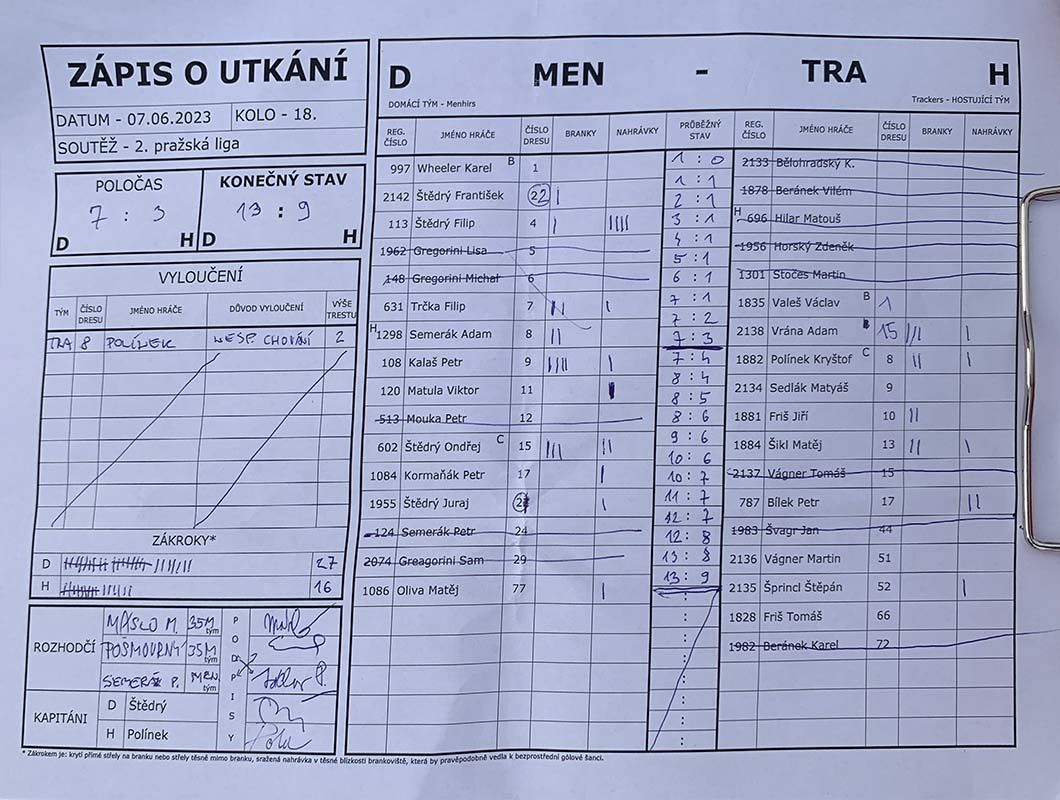 ZÁPIS O UTKÁNÍ
DATUM - 07.06.2023 KOLO - 18.
SOUTĚŽ - 2. pražská liga
POLOČAS KONEČNÝ STAV
7 : 3 13 : 9
D H D H
VYLOUČENÍ
TÝM ČÍSLO DRESU JMÉNO HRÁČE DŮVOD VYLOUČENÍ VÝŠE TRESTU
TRA 8 POLÍNEK NESP. CHOVÁNÍ 2
ZÁKROKY*
D 27
H 16
ROZHODČÍ
MÁSLO M. 35M tým
POŠMOURNÝ 35M tým
SEMERÁK P. MEN. tým
PODPISY
KAPITÁNI
D Štědrý
H Polínek
D MEN - TRA H
DOMÁCÍ TÝM - Menhirs Trackers - HOSTUJÍCÍ TÝM
REG. ČÍSLO JMÉNO HRÁČE ČÍSLO DRESU BRANKY NAHRÁVKY PRŮBĚŽNÝ STAV REG. ČÍSLO JMÉNO HRÁČE ČÍSLO DRESU BRANKY NAHRÁVKY
997 Wheeler Karel B 1
2142 Štědrý František 22 |
113 Štědrý Filip 4 | ||||
1962 Gregorini Lisa 5
148 Gregorini Michal 6
631 Trčka Filip 7 || |
H 1298 Semerák Adam 8 ||
108 Kalaš Petr 9 |||| |
120 Matula Viktor 11
513 Mouka Petr 12
602 Štědrý Ondřej C 15 ||| ||
1084 Kormaňák Petr 17 |
1955 Štědrý Juraj |
124 Semerák Petr 24
2074 Greagorini Sam 29
1086 Oliva Matěj 77 |
1 : 0
1 : 1
2 : 1
3 : 1
4 : 1
5 : 1
6 : 1
7 : 1
7 : 2
7 : 3
7 : 4
8 : 4
8 : 5
8 : 6
9 : 6
10 : 6
10 : 7
11 : 7
12 : 7
12 : 8
13 : 8
13 : 9
2133 Bělohradský K.
1878 Beránek Vilém
H 696 Hilar Matouš
1956 Horský Zdeněk
1301 Stočes Martin
1835 Valeš Václav B 1
2138 Vrána Adam 15 ||| |
1882 Polínek Kryštof C 8 || |
2134 Sedlák Matyáš 9
1881 Friš Jiří 10 ||
1884 Šikl Matěj 13 || |
2137 Vágner Tomáš 15
787 Bílek Petr 17 ||
1983 Švagr Jan 44
2136 Vágner Martin 51
2135 Šprincl Štěpán 52 |
1828 Friš Tomáš 66
1982 Beránek Karel 72
* Zákrokem je: krytí přímé střely na branku nebo střely těsně mimo branku, sražená nahrávka v těsné blízkosti brankoviště, která by pravěpodobně vedla k bezprostřední gólové šanci.